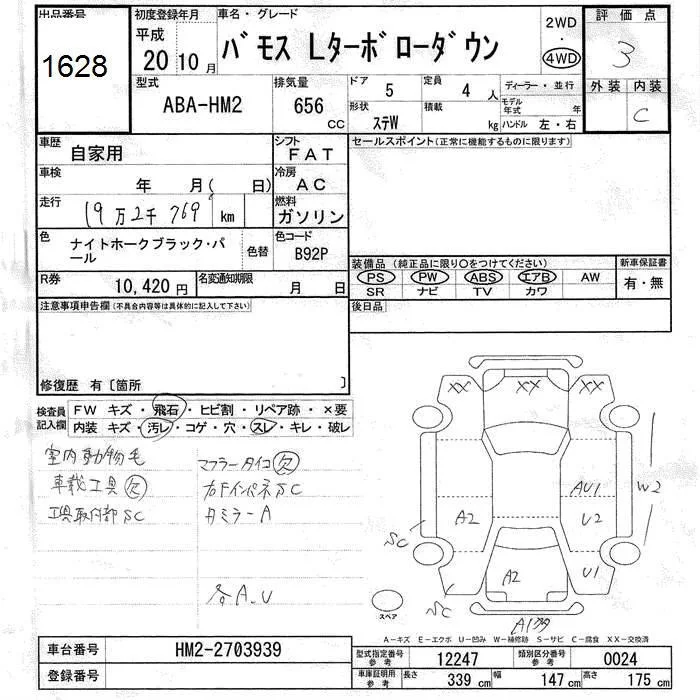 出品番号
1628
初度登録年月
平成
20 10 月
車名・グレード
バモス Lターボローダウン
2WD
・
4WD
評価点
3
型式
ABA-HM2
排気量
656
cc
ドア
5
定員
4 人
形状
ステW
積載
kg
ディーラー・並行
モデル年式 年
ハンドル 左・右
外装 内装
C
車歴
自家用
シフト
FAT
セールスポイント(正常に機能するものに限ります)
車検
年 月( 日)
冷房
AC
走行
19万2千769 km
燃料
ガソリン
色
ナイトホークブラック・パール
色替
色コード
B92P
装備品(純正品に限り○をつけてください)
PS PW ABS エアB AW
SR ナビ TV カワ
新車保証書
有・無
R券
10,420 円
名変通知期限
月 日
後日品
注意事項申告欄(不具合内容等は具体的に記入して下さい)
修復歴 有〔箇所 〕
検査員記入欄
FW キズ・飛石・ヒビ割・リペア跡・×要
内装 キズ・汚レ・コゲ・穴・スレ・キレ・破レ
室内動物毛
車載工具欠
工具取付部SC
マフラータイコ欠
カドインパネSC
タミラーA
各A、U
XX XX XX
AU1
U2
W2
A2
SC
A2
U1
SC
A1多
スペア
A-キズ E-エクボ U-凹み W-補修跡 S-サビ C-腐食 XX-交換済
車台番号
HM2-2703939
登録番号
型式指定番号
参考
12247
類別区分番号
参考
0024
車庫証明用
参考
長さ
339 cm
幅
147 cm
高さ
175 cm